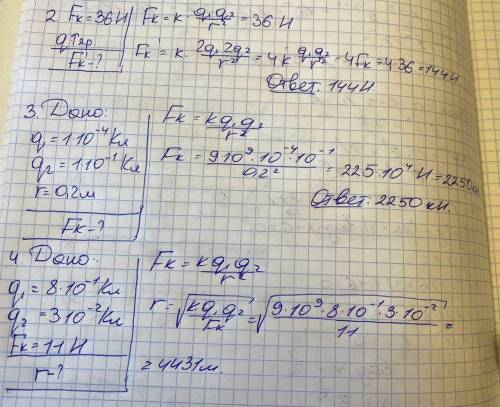 2. Fк = 36 Н | Fк = к · q₁q₂/r² = 36 Н
q↑2р
Fк - ? | Fк = к · 2q₁2q₂/r² = 4к q₁q₂/r² = 4Fк = 4·36 = 144Н
Ответ: 144 Н.
3. Дано:
q₁ = 1·10⁻⁴ Кл
q₂ = 1·10⁻¹ Кл
r = 0,2 м
Fк - ?
Fк = кq₁q₂/r²
Fк = 9·10⁹·10⁻⁴·10⁻¹/0,2² = 225·10⁴ Н = 2250 кН
Ответ: 2250 кН.
4 Дано:
q₁ = 8·10⁻¹ Кл
q₂ = 3·10⁻² Кл
Fк = 11 Н
r - ?
Fк = кq₁q₂/r²
r = √(кq₁q₂/Fк) = √(9·10⁹·8·10⁻¹·3·10⁻²/11) =
= 4431 м.